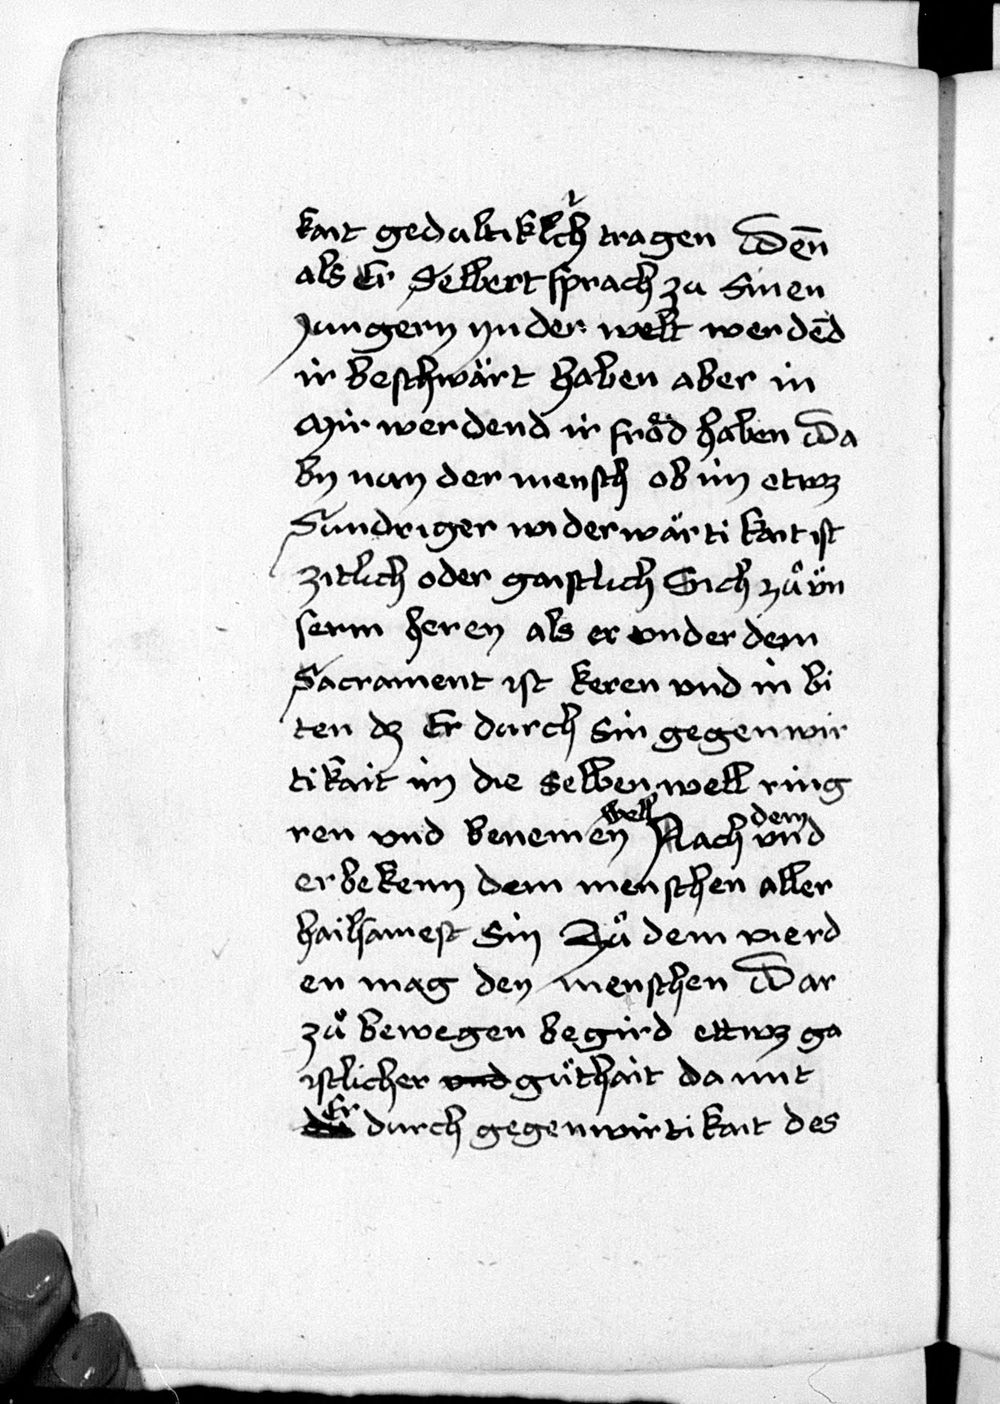 kait gedultiklich tragen Wen̄
als Er Selbert sprach zu Sinen
Jungern yn der welt werdēd
ir beschwärt haben aber in
Mir werdend ir fröd haben Da
by nun der mensch ob im etwz
Sundriger widerwärtikait ist
zitlich oder gaistlich Sich zů ün
serm heren als er vnder dem
Sacrament ist keren vnd in bi
ten dz Er durch sin gegenwir
tikait im die selben well ring
ren vnd benemen well Nach dem vnd
er bekenn dem menschen aller
hailsamest Sin Zů dem vierd
en mag den menschen Dar
zů bewegen begird ettwz ga
istlicher vnd güthait da mit
Er durch gegenwirtikait des